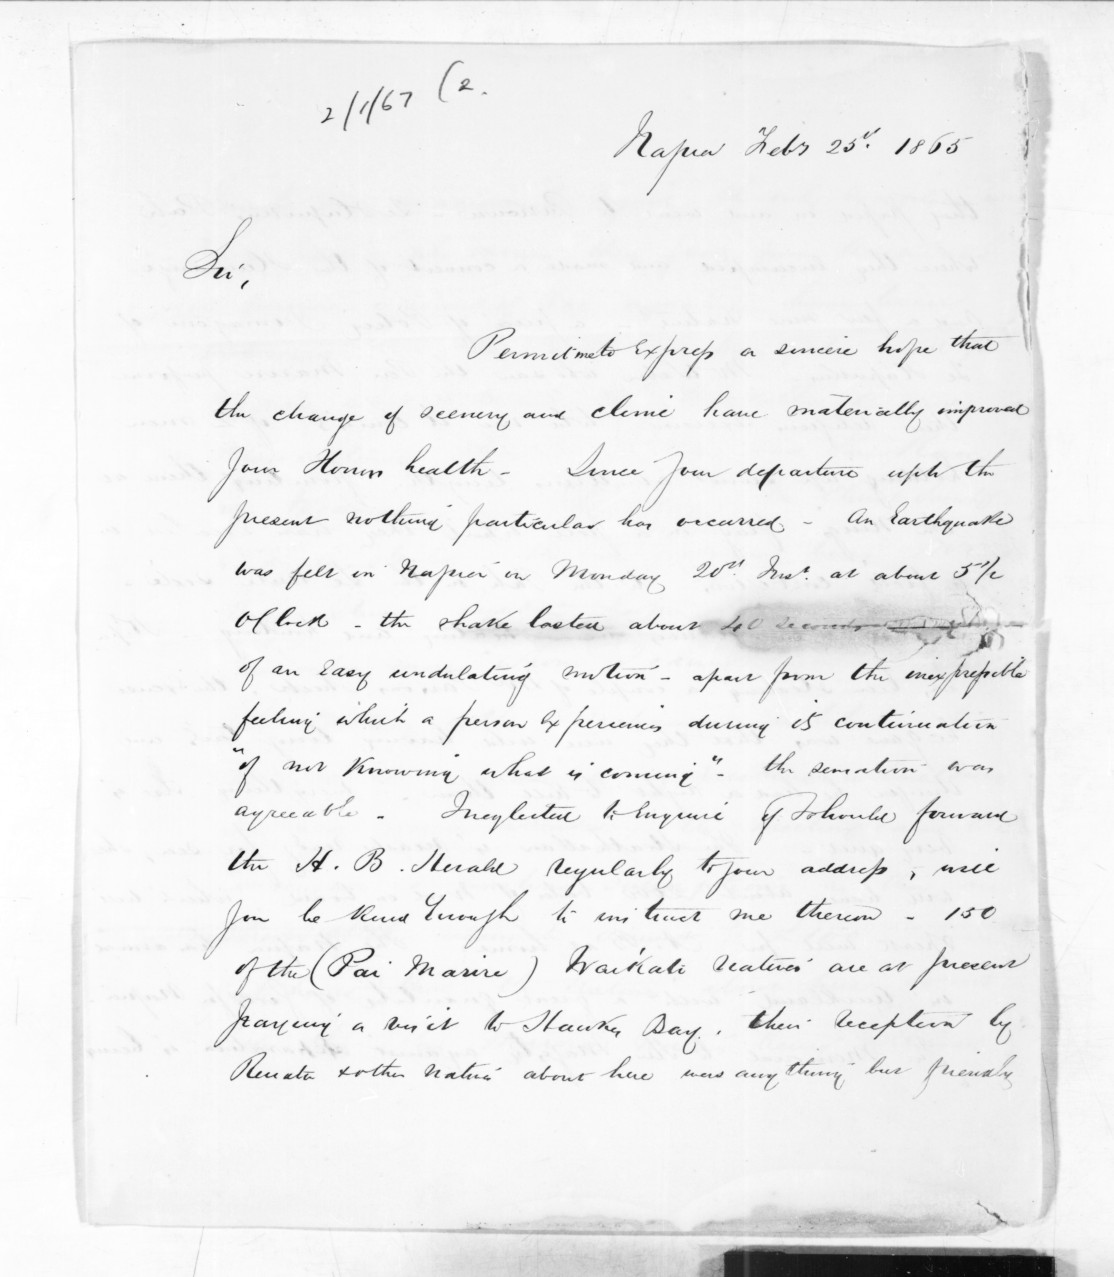 2/1/67 (2.
Napier Feby 25th. 1865
Sir,
Permit me to Express a sincere hope that
the change of scenery and clime have materially improved
Your Honors health - Since Your departure upto the
present nothing particular has occurred - An Earthquake
was felt in Napier on Monday 20th Inst. at about 5 1/2
OClock - the shake lasted about 40 seconds
of an Easy undulating motion - apart from the inexpressible
feeling which a person Experiences during its continuation
"of not Knowing what is coming" - the sensation was
agreeable - I neglected to Enquire if I should forward
the H. B. Herald regularly to your address, will
You be Kind Enough to instruct me thereon - 150
of the (Pai Marire) Waikato Natives are at present
paying a visit to Hawkes Bay. their reception by
Renata & other Natives about here was anything but friendly